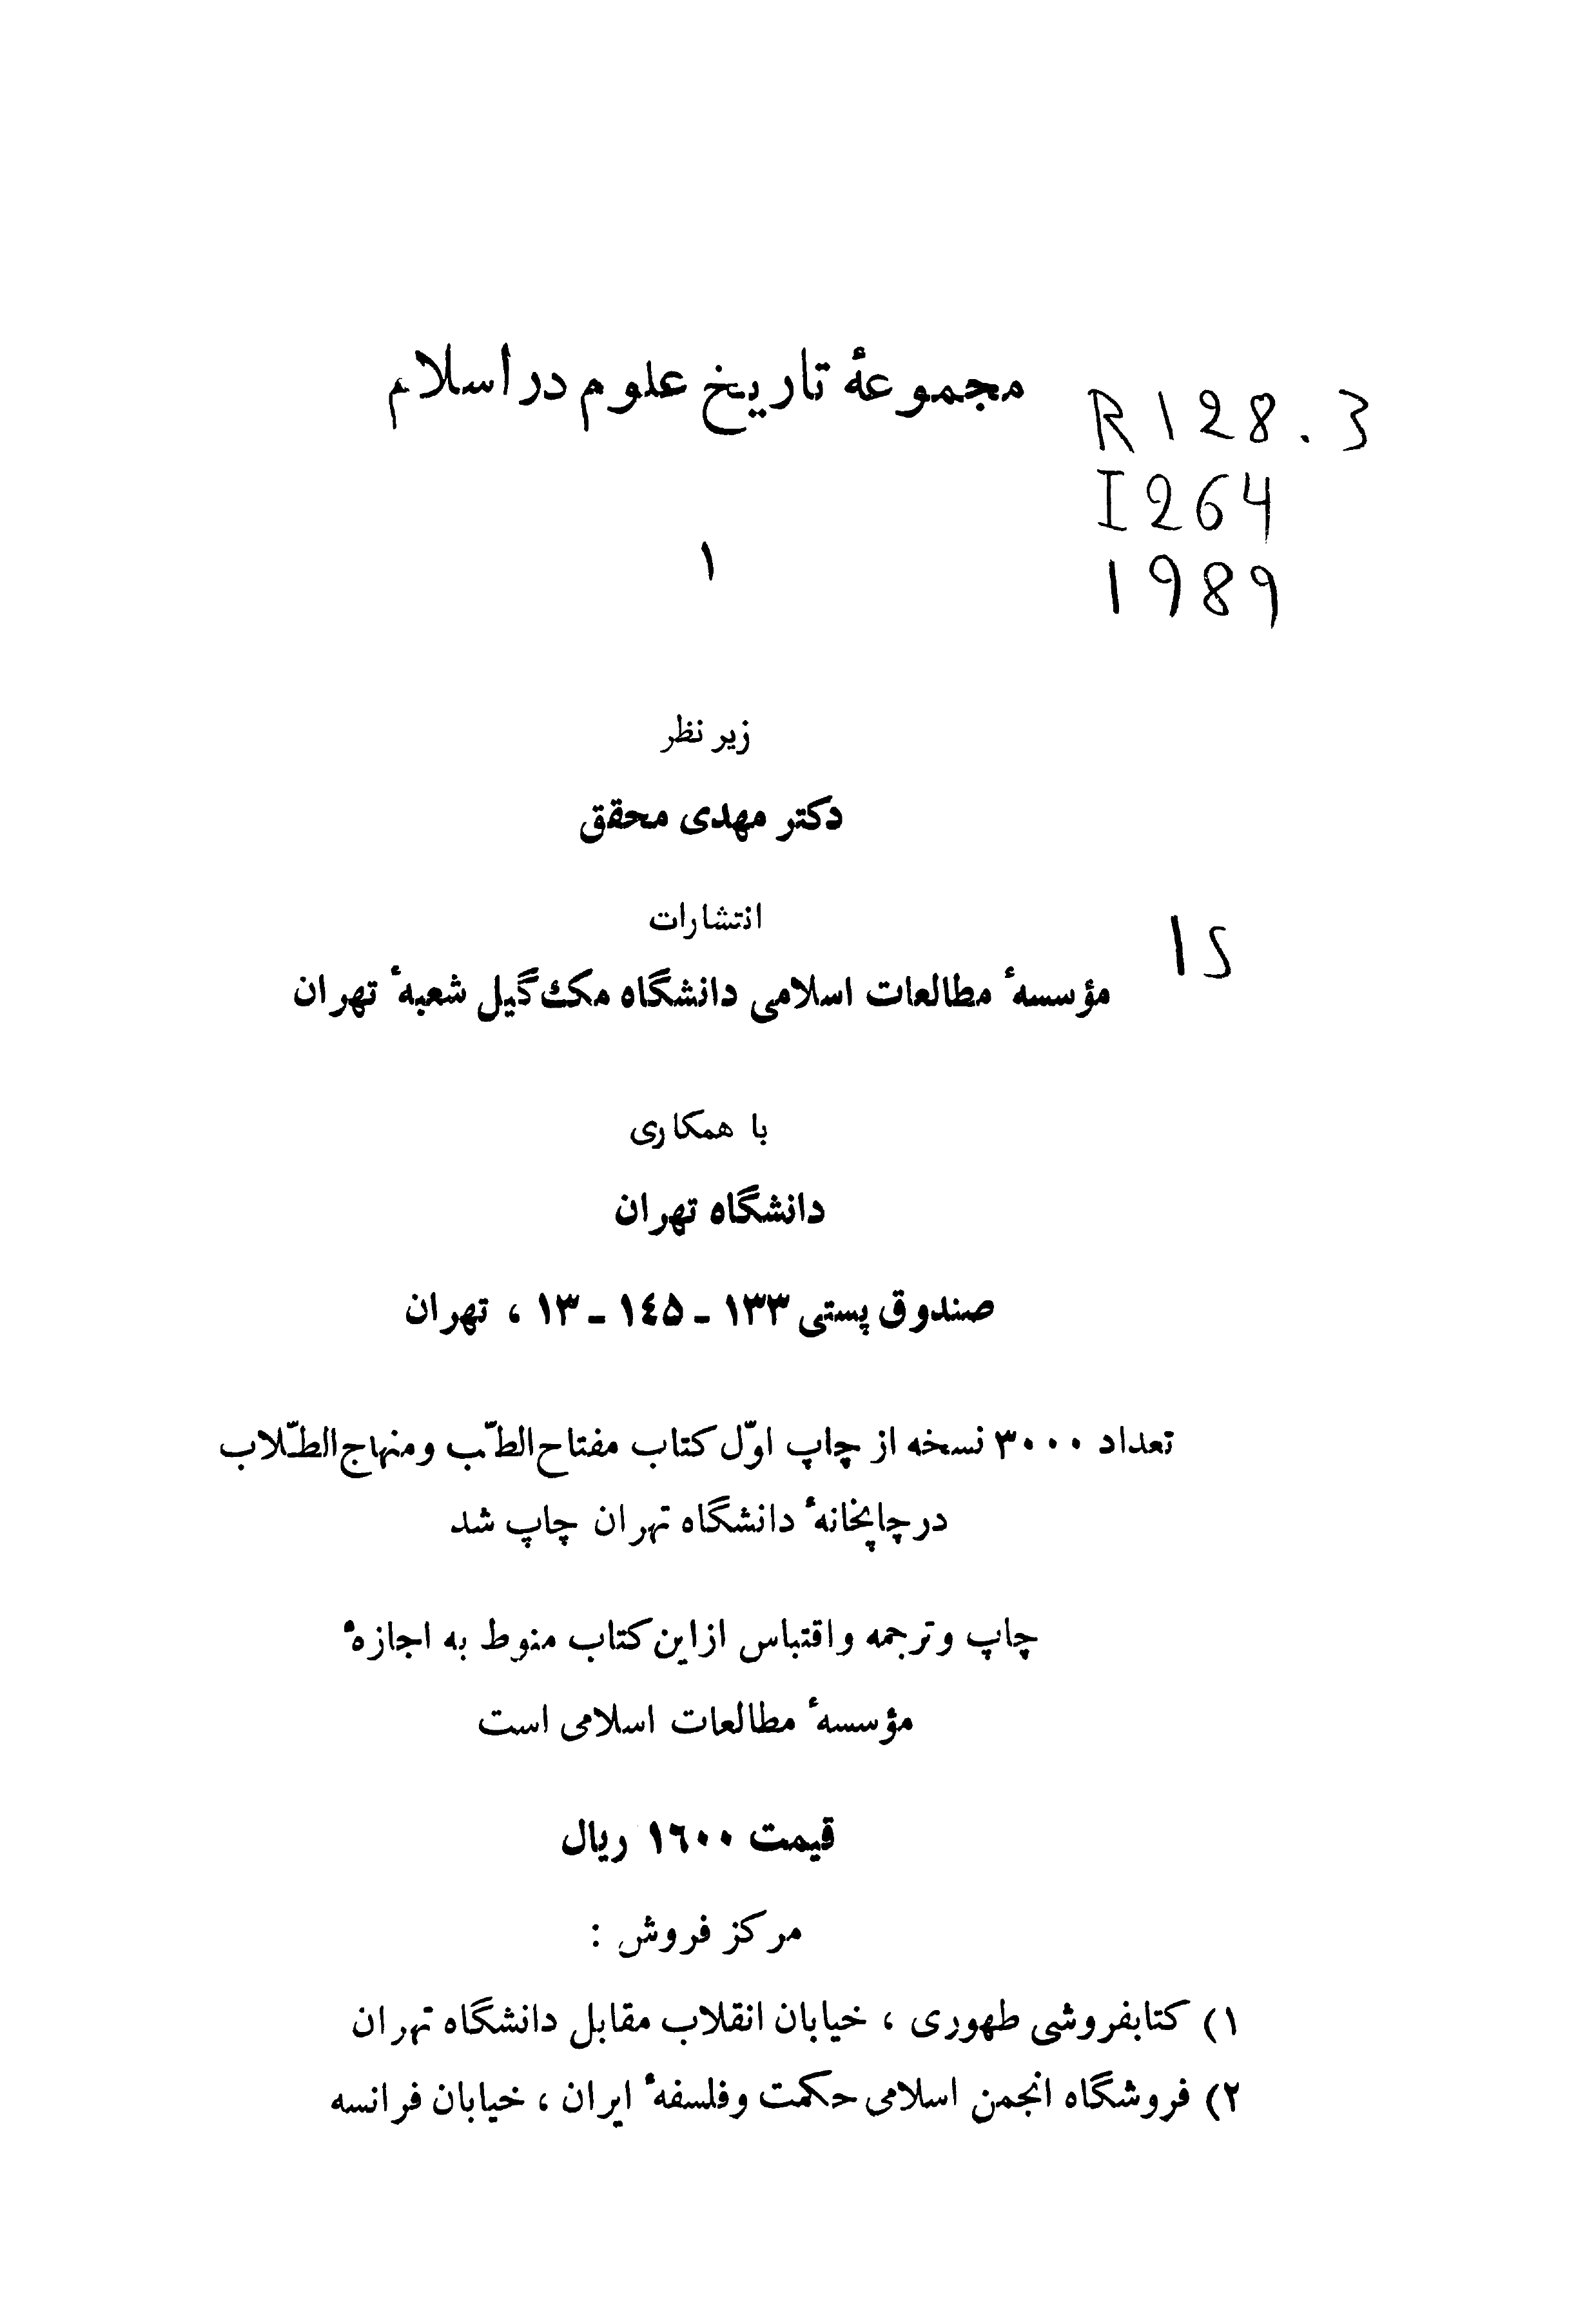 مجموعهٔ تاریخ علوم در اسلام
R 128.3
I 264
1989
۱
زیر نظر
دکتر مهدی محقق
انتشارات
IS
مؤسسهٔ مطالعات اسلامی دانشگاه مک‌گیل شعبهٔ تهران
با همکاری
دانشگاه تهران
صندوق پستی ۱۳۳ ـ ۱۴۵ ـ ۱۳ ، تهران
تعداد ۳۰۰۰ نسخه از چاپ اوّل کتاب مفتاح الطّب و منهاج الطّلاب
در چاپخانهٔ دانشگاه تهران چاپ شد
چاپ و ترجمه و اقتباس از این کتاب منوط به اجازهٔ
مؤسسهٔ مطالعات اسلامی است
قیمت ۱۶۰۰ ریال
مرکز فروش :
۱) کتابفروشی طهوری ، خیابان انقلاب مقابل دانشگاه تهران
۲) فروشگاه انجمن اسلامی حکمت و فلسفهٔ ایران ، خیابان فرانسه